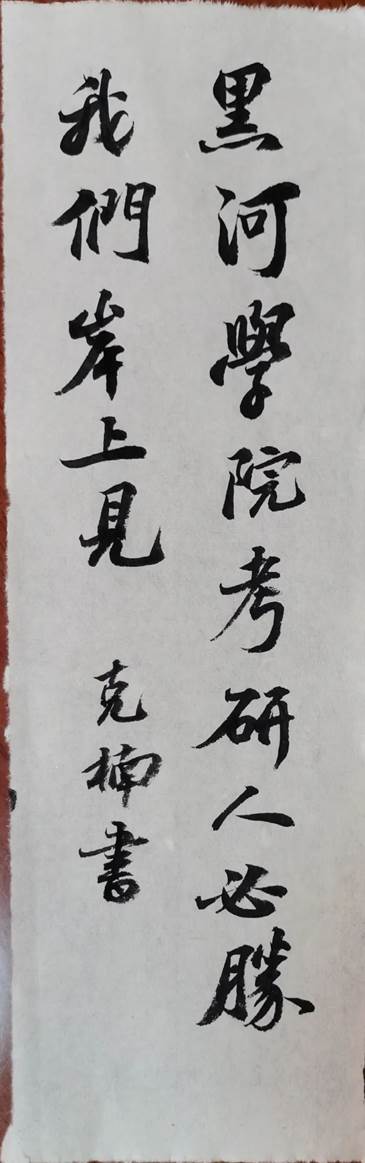 黑河學院考研人必勝
我們岸上見
克楠書